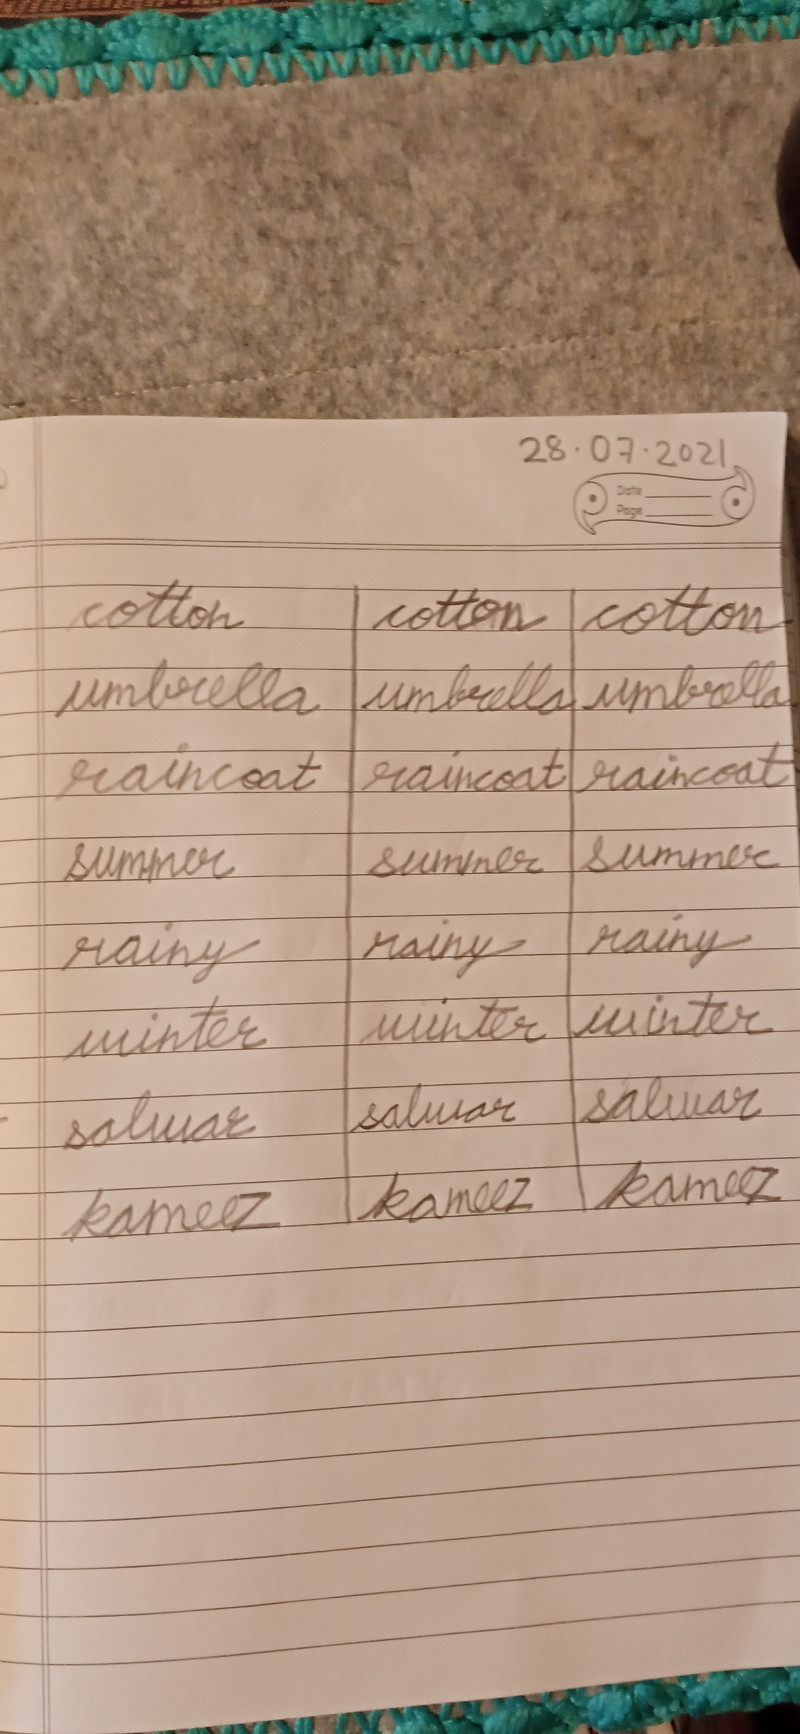 28.07.2021
Date
Page
cotton cotton cotton
umbrella umbrella umbrella
raincoat raincoat raincoat
summer summer summer
rainy rainy rainy
winter winter winter
salwar salwar salwar
kameez kameez kameez